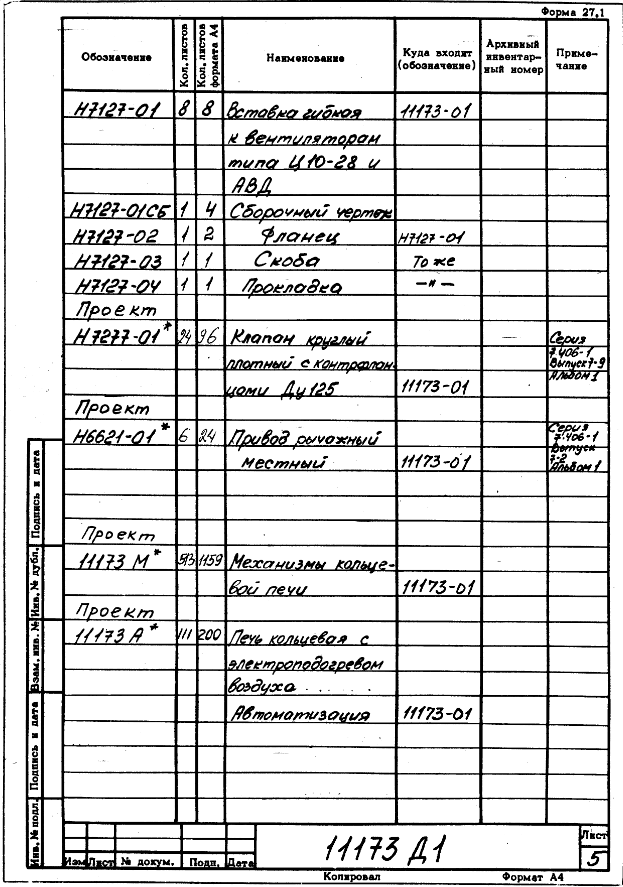 Форма 27,1
Обозначение Кол. листов Кол. листов формата А4 Наименование Куда входит (обозначение) Архивный инвентарный номер Примечание
Н7127-01 8 8 Вставка гибкая 11173-01
к вентиляторам
типа Ц10-28 и
АВД
Н7127-01СБ 1 4 Сборочный чертеж
Н7127-02 1 2 Фланец Н7127-01
Н7127-03 1 1 Скоба То же
Н7127-04 1 1 Прокладка —"—
Проект
Н7277-01* 24 96 Клапан круглый Серия
плотный с контрфлан- 7.406-1
Выпуск 7-9
цами Ду125 11173-01 Альбом 1
Проект
Н6621-01* 6 24 Привод рычажный Серия
7.406-1
местный 11173-01 Выпуск
7-2
Альбом 1
Проект
11173 М* 513 1159 Механизмы кольце-
вой печи 11173-01
Проект
11173 А* 111 200 Печь кольцевая с
электроподогревом
воздуха
Автоматизация 11173-01
Инв. № подл. Подпись и дата Взам. инв. № Инв. № дубл. Подпись и дата
Изм Лист № докум. Подп. Дата
11173 Д1
Лист
5
Копировал Формат А4